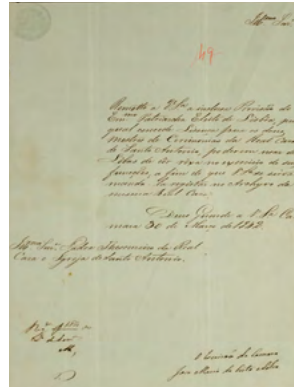 Ill.mo Snr.
49
Remetto a V.S.a a inclusa Provisão do
Em.mo Patriarcha Eleito de Lisboa, pela
qual concede Licença para os dous
Mestres de Ceremonias da Real Casa
de Santo Antonio, poderem usar de
de côr rôxa no exercicio de suas
funcções, a fim de que V.S.a a
mande registar no Archivo da
mesma Real Casa.
Deos Guarde a V.S.a Ca
mara 30 de Março de 1842.
Ill.mo Snr. Padre Thesoureiro da Real
Casa e Igreja de Santo Antonio.
O Escrivão da Camara
José Maria da Costa e